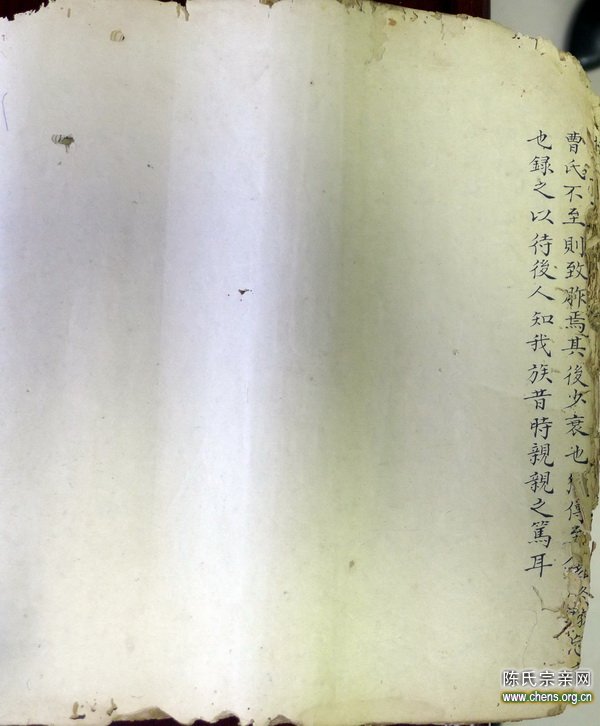 曹氏不至則致胙焉其後少衰也傳至
也錄之以待後人知我族昔時親親之篤耳
陈氏宗亲网
www.chens.org.cn